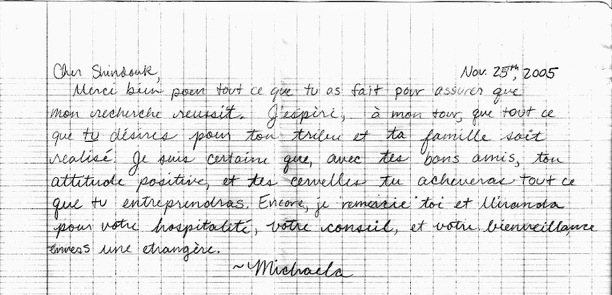 Cher Shindouk, Nov. 25th, 2005
Merci bien pour tout ce que tu as fait pour assurer que
mon recherche reussit. J'espire, à mon tour, que tout ce
que tu désires pour ton tribu et ta famille soit
realisé. Je suis certaine que, avec tes bons amis, ton
attitude positive, et tes cervelles tu acheveras tout ce
que tu entreprendras. Encore, je remercie toi et Miranda
pour votre hospitalité, votre conseil, et votre bienveillance
envers une etrangère.
~Michaela